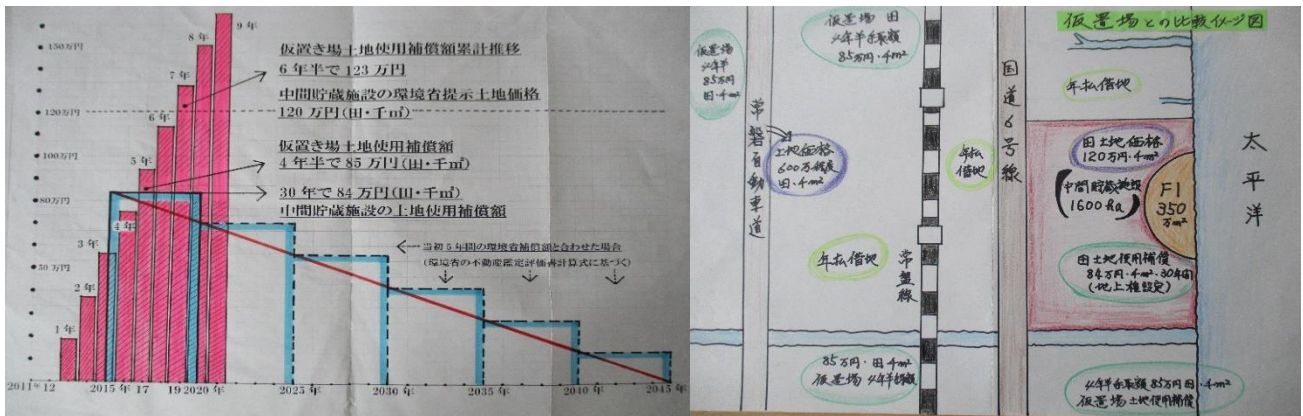 150万円
120万円
100万円
80万円
50万円
1年
2年
3年
4年
5年
6年
7年
8年
9年
仮置き場土地使用補償額累計推移
6年半で123万円
中間貯蔵施設の環境省提示土地価格
120万円(田・千㎡)
仮置き場土地使用補償額
4年半で85万円(田・千㎡)
30年で84万円(田・千㎡)
中間貯蔵施設の土地使用補償額
当初5年間の環境省補償額と合わせた場合
(環境省の不動産鑑定評価書計算式に基づく)
2011年12
2015年
17
19
2020年
2025年
2030年
2035年
2040年
2045年
仮置場との比較イメージ図
仮置場
4年半
85万円
田・千m²
仮置場 田
4年半受取額
85万円・千m²
常磐自動車道
土地価格
600万程度
田・千m²
年払
借地
年払借地
常盤線
国道6号線
年払借地
田土地価格
120万円・千m²
(中間貯蔵施設
1600ha)
F1
350
万m²
田土地使用補償
84万円・千m²・30年間
(地上権設定)
太平洋
85万円・田・千m²
仮置場 4年半
4年半受取額85万円 田・千m²
仮置場土地使用補償